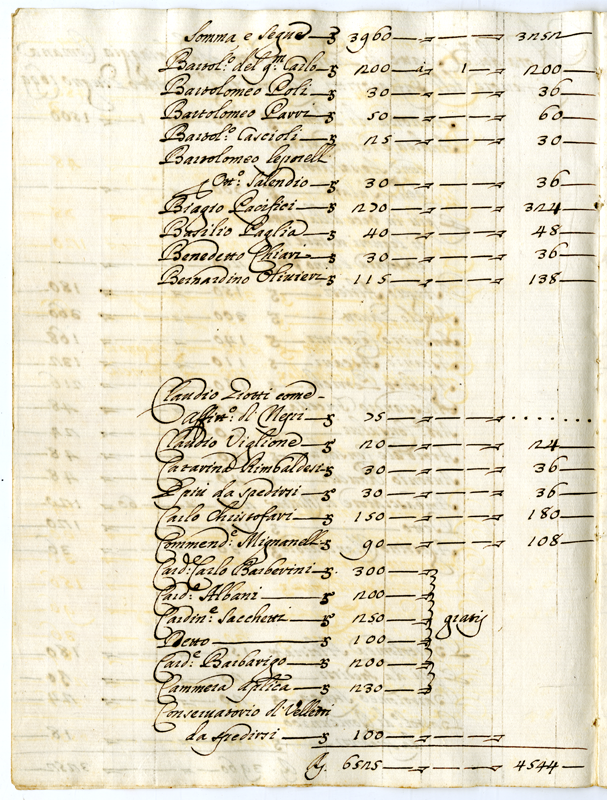 Somma e segue — $ 3960 — — 3252
Bartol.º del q.m Carlo $ 200 — à 1 — 200
Bartolomeo Poli — $ 30 — — 36
Bartolomeo Parri — $ 50 — — 60
Bartol.º Cascioli — $ 25 — — 30
Bartolomeo Leporell
Ott.º Salendio — $ 30 — — 36
Biagio Pacifici — $ 270 — — 324
Basilio Paglia — $ 40 — — 48
Benedetto Chiari — $ 30 — — 36
Bernardino Olivieri $ 115 — — 138
Claudio Ziotti come
Affitt.º di Nepi — $ 75 — — . . . . . . .
Claudio Viglione — $ 20 — — 24
Catarina Rimbaldesi $ 30 — — 36
E più da spedirsi — $ 30 — — 36
Carlo Christofari — $ 150 — — 180
Commend.e Mignanell $ 90 — — 108
Card. Carlo Barberini — $ 300 —
Card.e Albani — $ 200 —
Cardin.e Sacchetti — $ 250 — gratis
Detto — $ 100 —
Card.e Barbarigo — $ 200 —
Cammera Aplica — $ 230 —
Conservatorio di Velletri
da spedirsi — $ 100 — —
$. 6525 — — 4544